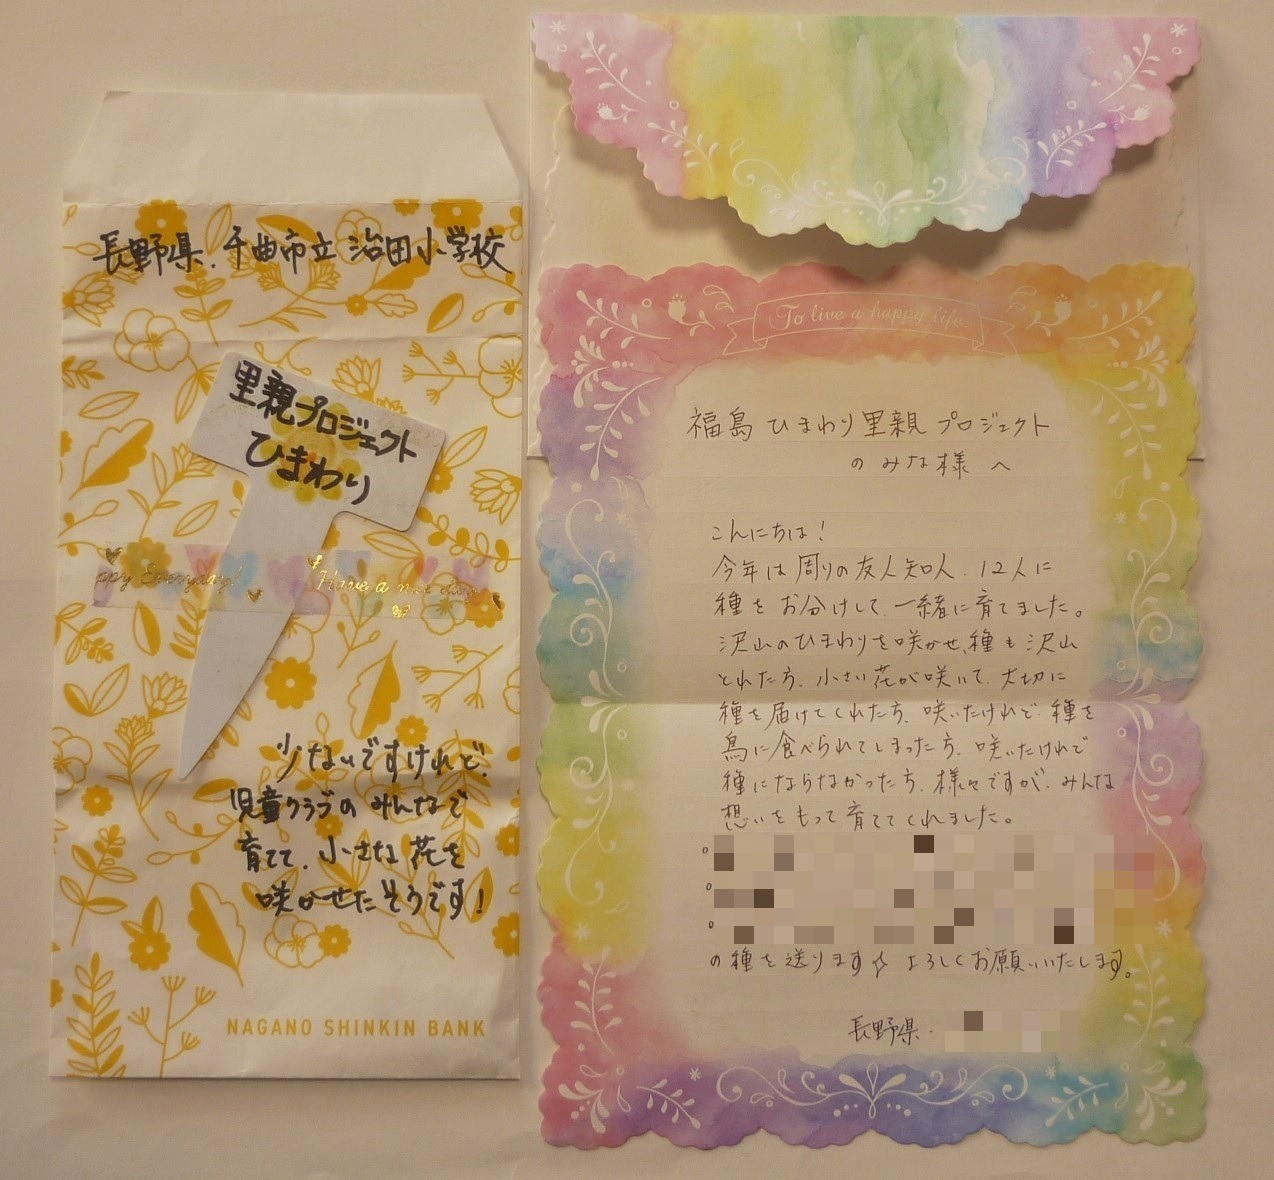 長野県.千曲市立 治田小学校
里親プロジェクト
ひまわり
ppy Everyday!
Have a nice day
少ないですけれど、
児童クラブの みんなで
育てて、小さな花を
咲かせたそうです!
NAGANO SHINKIN BANK
To live a happy life.
福島 ひまわり里親プロジェクト
のみな様へ
こんにちは!
今年は周りの友人知人、12人に
種をお分けして、一緒に育てました。
沢山のひまわりを咲かせ、種も沢山
とれた方、小さい花が咲いて、大切に
種を届けてくれた方、咲いたけれど、種を
鳥に食べられてしまった方、咲いたけれど
種にならなかった方、様々ですが、みんな
想いをもって育ててくれました。
の種を送ります☆ よろしくお願いいたします。
長野県.